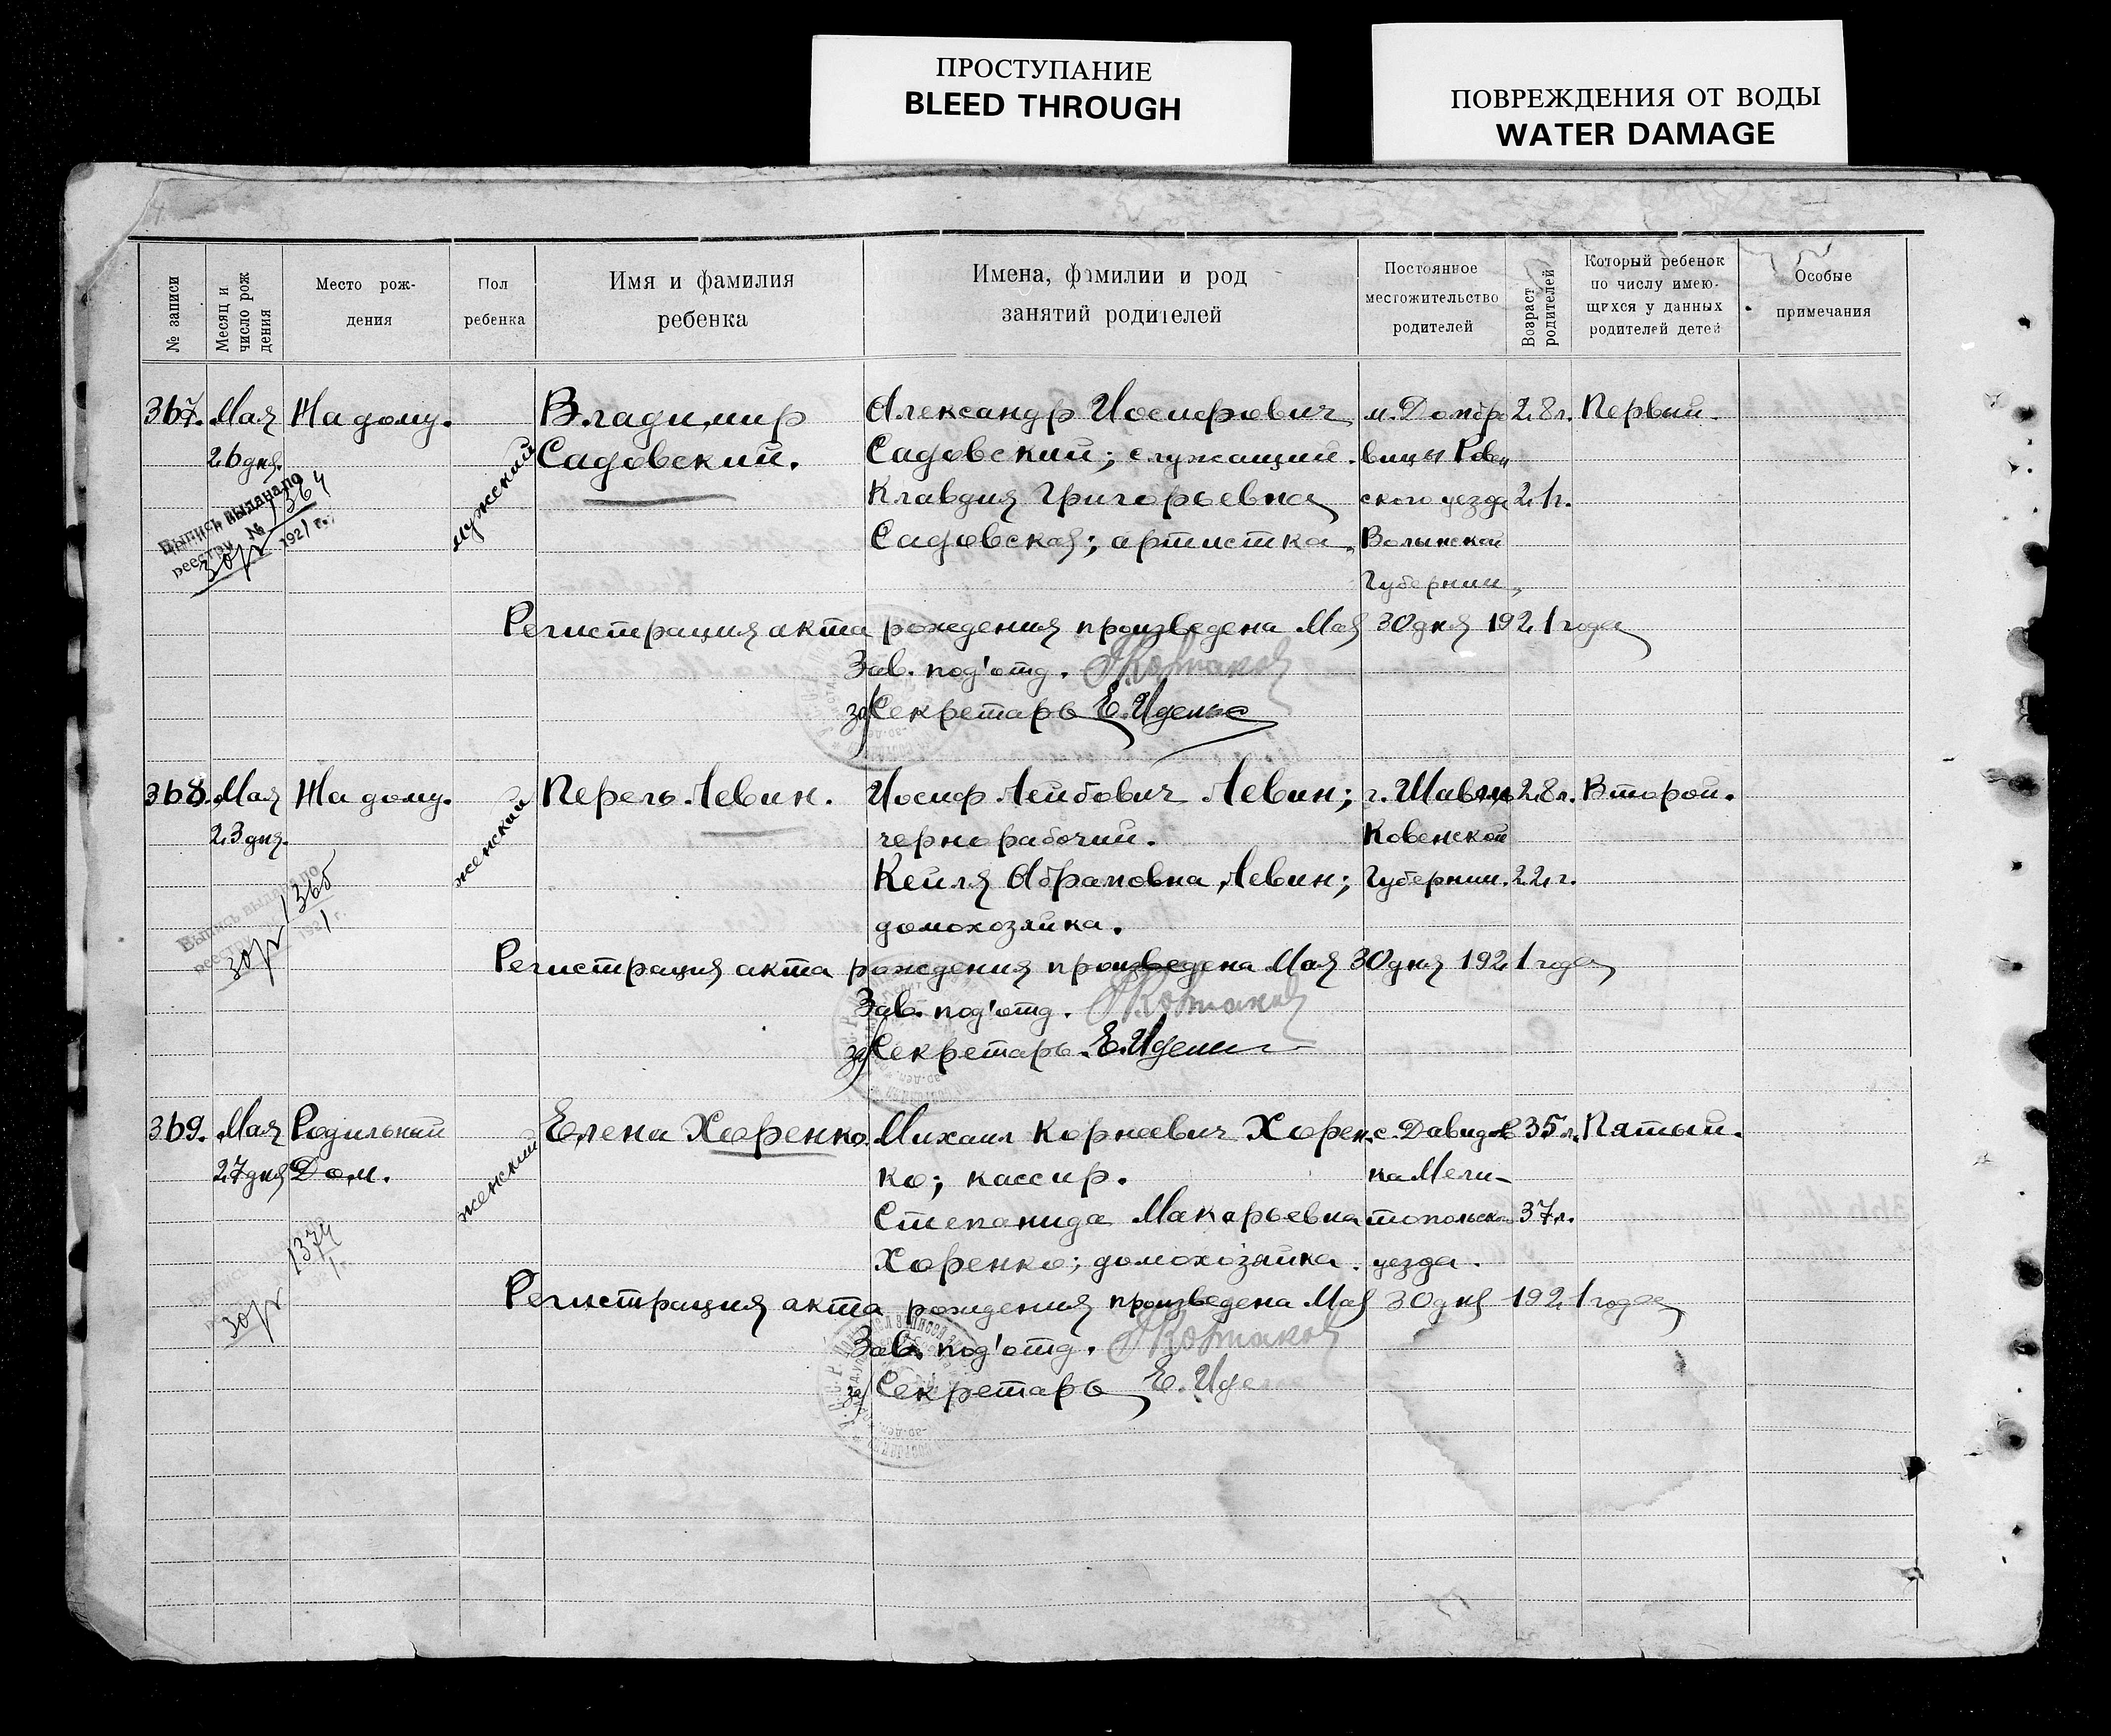 ПРОСТУПАНИЕ
BLEED THROUGH
ПОВРЕЖДЕНИЯ ОТ ВОДЫ
WATER DAMAGE
№ записи
Месяц и число рож дения
Место рож-
дения
Пол
ребенка
Имя и фамилия
ребенка
Имена, фамилии и род
занятий родителей
Постоянное
местожительство
родителей
Возраст родителей
Который ребенок
по числу имею-
щихся у данных
родителей детей
Особые
примечания
367. Мая На дому. мужеский Владимир Александр Иосифович м. Домбро 28 л. Первый.
26 дня. Садовский. Садовский; служащий. вицы Ровен
Клавдия Григорьевна ского уезда 21 г.
Садовская; артистка. Волынской
Губернии.
Выпись выдана по
реестру № 1364
30/V 1921 г.
Регистрация акта рождения произведена Мая 30 дня 1921 года
Зав. под'отд.
за Секретарь Е.
368. Мая На дому. женский Перель Левин. Иосиф Лейбович Левин; г. Шавли 28 л. Второй.
23 дня. чернорабочий. Ковенской
Кейля Абрамовна Левин; Губернии. 22 г.
домохозяйка.
Выпись выдана по
реестру 1366
30/V 1921 г.
Регистрация акта рождения произведена Мая 30 дня 1921 года
Зав. под'отд.
за Секретарь. Е.
369. Мая Родильный женский Елена Хоренко. Михаил Корнеевич Хорен- с. Давидов 35 л. Пятый.
27 дня Дом. ко; кассир. ка Мели-
Степанида Макарьевна топольска 37 л.
Хоренко; домохозяйка. уезда.
1374
30/V
Регистрация акта рождения произведена Мая 30 дня 1921 года
Зав. под'отд.
за Секретарь Е.